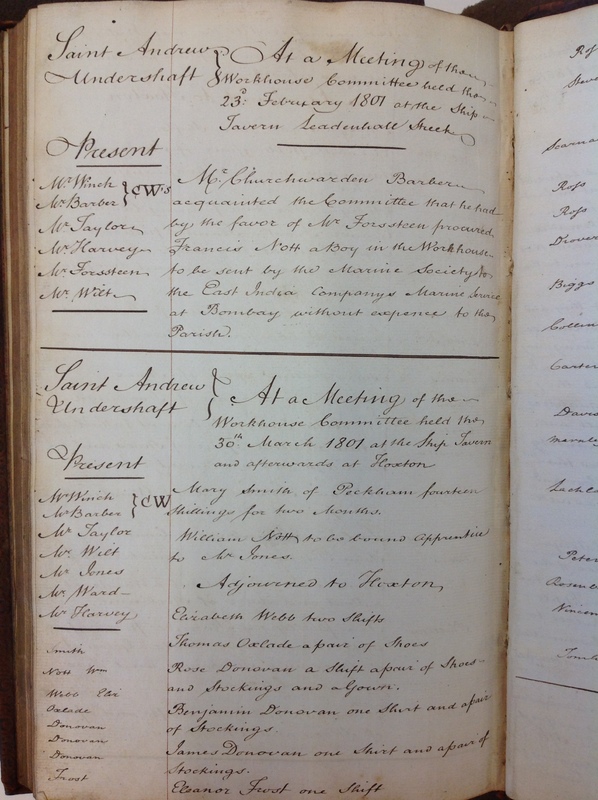 Saint Andrew
Undershaft
At a Meeting of the
Workhouse Committee held the
23d. February 1801 at the Ship
Tavern Leadenhall Street
Present
Mr. Winch
Mr. Barber
CWs
Mr. Taylor
Mr. Harvey
Mr. Forssteen
Mr. Wilt
Mr. Churchwarden Barber
acquainted the Committee that he had
by the favor of Mr. Forssteen procured
Francis Nott a Boy in the Workhouse
to be sent by the Marine Society to
the East India Companys Marine Service
at Bombay without expence to the
Parish.
Saint Andrew
Undershaft
At a Meeting of the
Workhouse Committee held the
30th. March 1801 at the Ship Tavern
and afterwards at Hoxton
Present
Mr. Winch
Mr. Barber
CW
Mr. Taylor
Mr. Wilt
Mr. Jones
Mr. Ward
Mr. Harvey
Mary Smith of Peckham fourteen
Shillings for two Months.
William Nott to be bound Apprentice
to Mr. Jones.
Adjourned to Hoxton
Elizabeth Webb two Shifts
Smith
Thomas Oxlade a pair of Shoes
Nott Wm
Rose Donovan a Shift a pair of Shoes
and Stockings and a Gown.
Webb Eliz
Oxlade
Benjamin Donovan one Shirt and a pair
of Stockings.
Donovan
Donovan
James Donovan one Shirt and a pair of
Stockings.
Donovan
Frost
Eleanor Frost one Shift
Ross
Ross
Biggs
Carter